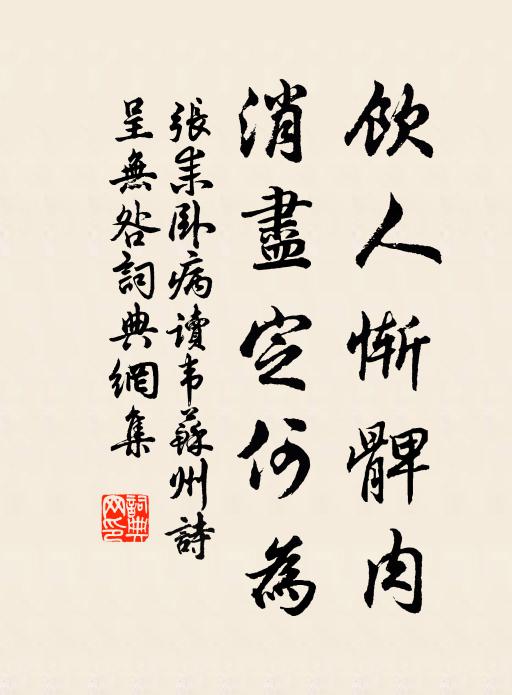 飲人慚髀肉
消盡定何為
張耒臥病讀韦蘇州詩
呈無咎詞典網集
詞典網印